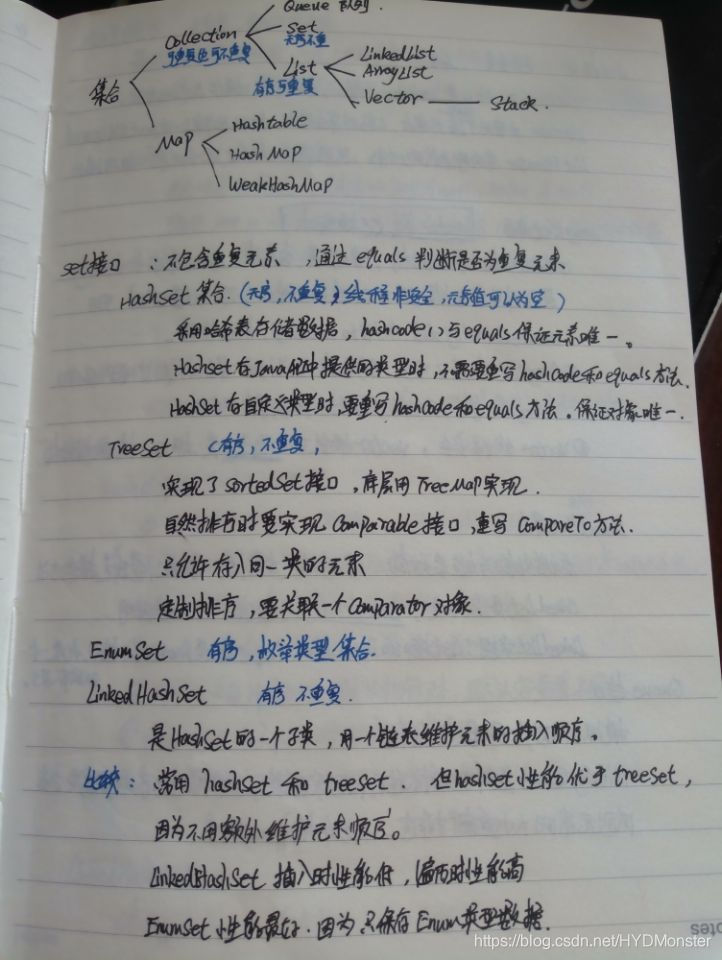 Queue 队列.
Collection
可重复也可不重复
Set
无序不重
集合
List
有序可重复
LinkedList
ArrayList
Vector —— Stack.
Map
Hashtable
HashMap
WeakHashMap
set接口 : 不包含重复元素 ,通过 equals 判断是否为重复元素
HashSet 集合. (无序, 不重复, 线程非安全, 元素值可以为空)
采用哈希表存储数据, hashcode()与equals保证元素唯一。
HashSet 存JavaAPI中提供的类型时, 不需要重写hashCode和equals方法.
HashSet 存自定义类型时,要重写hashCode和equals方法. 保证对象唯一.
TreeSet (有序, 不重复,
实现了 SortedSet接口, 底层用TreeMap实现.
自然排序时要实现 Comparable接口, 重写 CompareTo方法.
只允许存入同一类的元素
定制排序, 要关联一个Comparator 对象.
EnumSet 有序, 枚举类型集合.
LinkedHashSet 有序 不重复.
是HashSet的一个子类, 用一个链表维护元素的插入顺序。
比较: 常用 hashSet 和 treeSet. 但hashset性能优于treeset,
因为不用额外维护元素顺序。
LinkedHashSet 插入时性能低, 遍历时性能高
EnumSet 性能最好. 因为只保存Enum类型数据.
otes
https://blog.csdn.net/HYDMonster